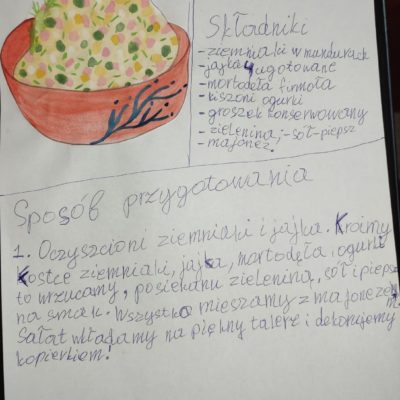 Składniki
- ziemniaki w mundurach
jajka ugotowane
- mortodeła firmoła
- kiszoni ogurki
- groszek konserwowany
- zielenina, - sół - piepsz
- majonez!
Sposób przygotowania
1. Oczyscioni ziemniaki i jajka. Kroimy
Kostce ziemniaki, jajka, mortodęła, ogurki
to wrzucamy, posiekanu zielenina, sół i piepsz
na smak. Wszystko mieszamy z majonezem.
Sałat wkładamy na piękny talerz i dekorujemy
koperkiem!